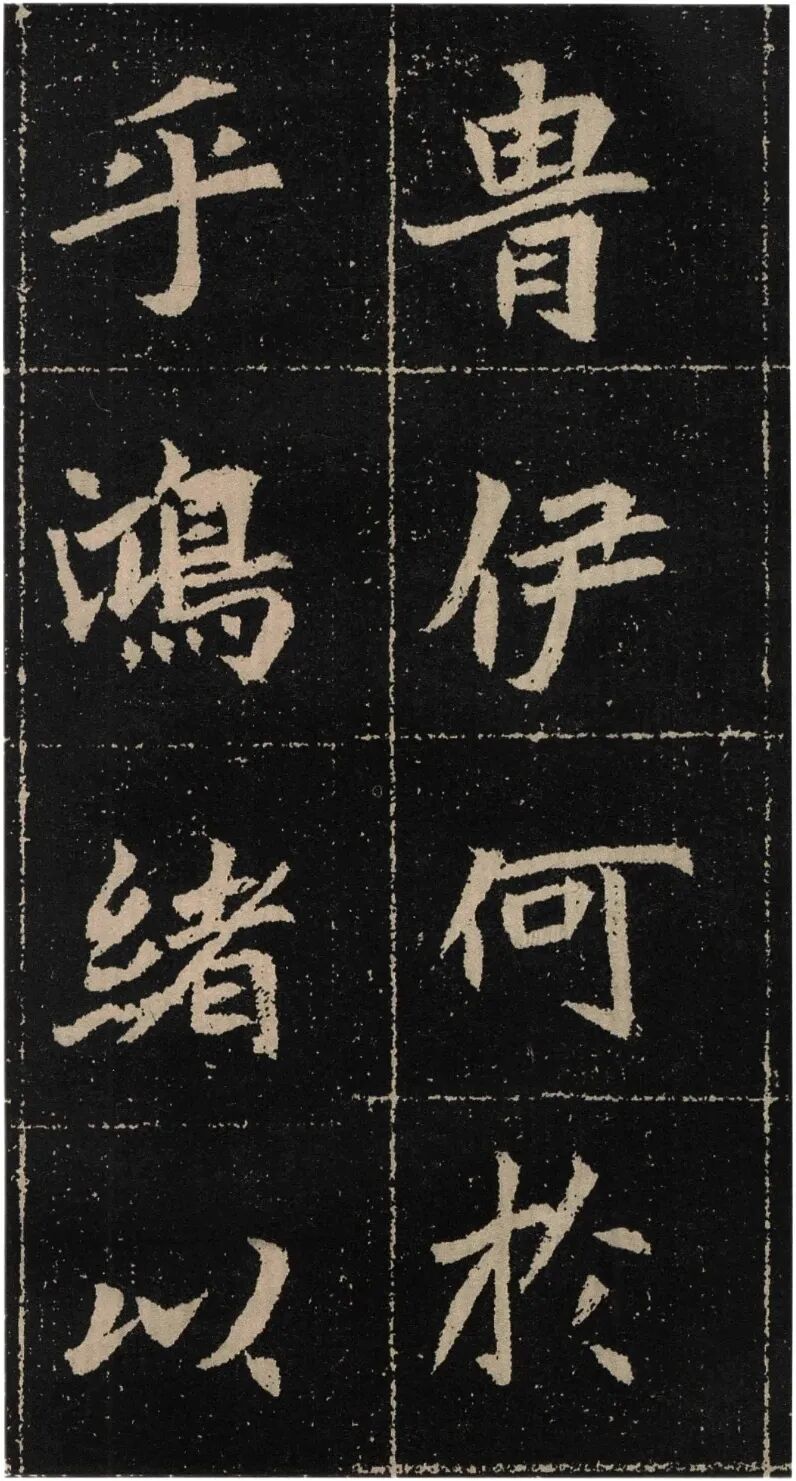 胄伊何於
乎鴻緒以